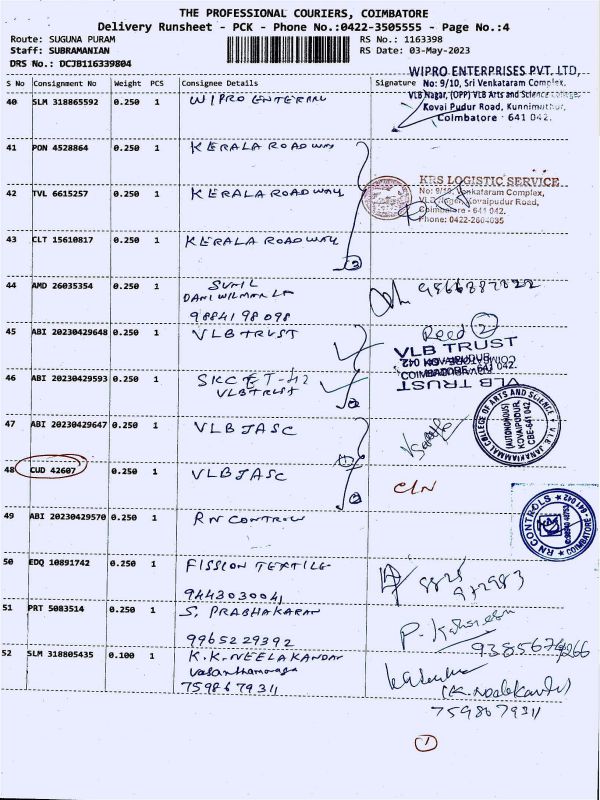 THE PROFESSIONAL COURIERS, COIMBATORE
Delivery Runsheet - PCK - Phone No.:0422-3505555 - Page No.:4
Route: SUGUNA PURAM
RS No.: 1163398
Staff: SUBRAMANIAN
RS Date: 03-May-2023
DRS No.: DCJB116339804
S No Consignment No Weight PCS Consignee Details Signature
WIPRO ENTERPRISES PVT. LTD,
No: 9/10, Sri Venkataram Complex,
VLB Nagar, (OPP) VLB Arts and Science College,
Kovai Pudur Road, Kunnimuthur,
Coimbatore - 641 042.
40 SLM 318865592 0.250 1 WIPRO
41 PON 4528864 0.250 1 KERALA ROADWAY
KRS LOGISTIC SERVICE
No: 9/10, Venkataram Complex,
VLB Nagar, Kovaipudur Road,
Coimbatore - 641 042.
Phone: 0422-2604635
42 TVL 6615257 0.250 1 KERALA ROADWAY
43 CLT 15610817 0.250 1 KERALA ROADWAY
3
44 AMD 26035354 0.250 1 SUNIL
98841 98098
45 ABI 20230429648 0.250 1 VLB TRUST
Recd 2
VLB TRUST
KOVAIPUDUR,
COIMBATORE - 641 042.
VLB TRUST
46 ABI 20230429593 0.250 1 SKCET-42
VLB TRUST
2
47 ABI 20230429647 0.250 1 VLBJASC
V.L.B. JANAKIAMMAL COLLEGE OF ARTS AND SCIENCE
(AUTONOMOUS)
KOVAIPUDUR,
CBE-641 042.
48 CUD 42607 0.250 1 VLBJASC
2
C/N
49 ABI 20230429570 0.250 1 RN CONTROL
RN CONTROLS
COIMBATORE - 641 042
50 EDQ 10891742 0.250 1 FISSION TEXTILE
9443030041
51 PRT 5083514 0.250 1 S. PRABHAKARAN
9965229392
P.
52 SLM 318805435 0.100 1 K.K. NEELAKANDAN
7598679311
7598679311
1